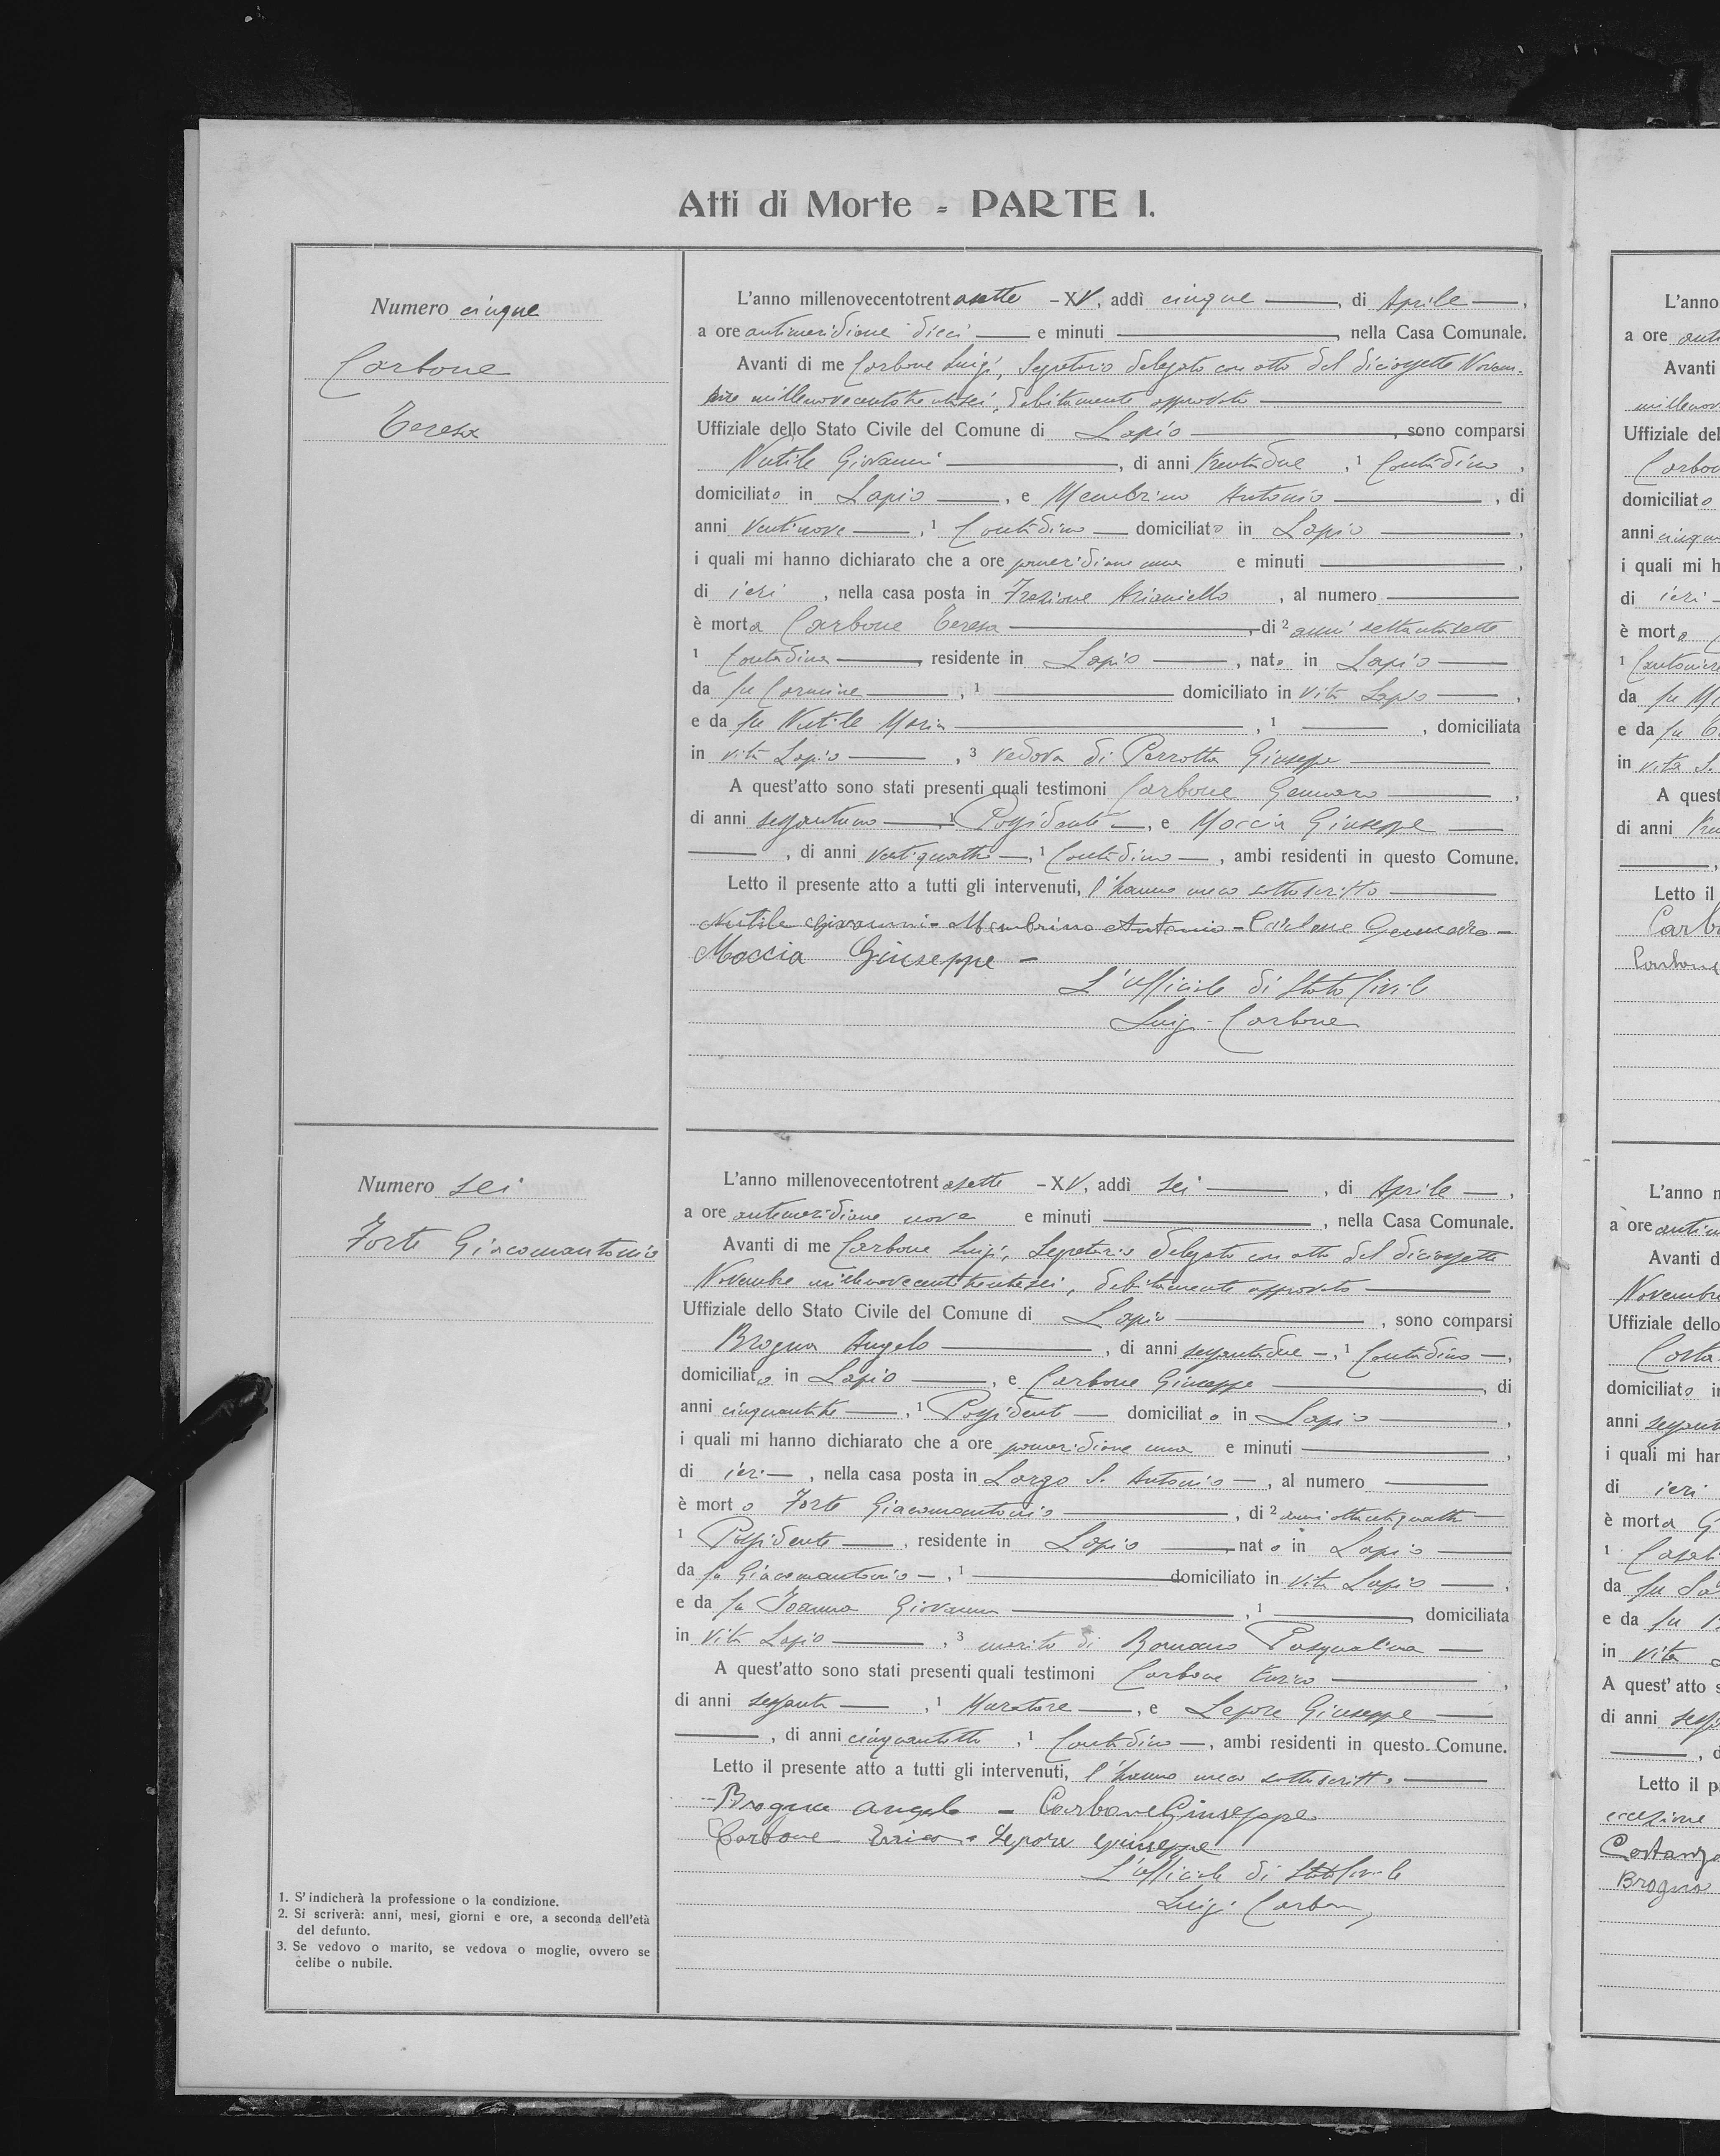 Atti di Morte - PARTE I.
Numero cinque
Carbone
Teresa
L'anno millenovecentotrentasette - XV, addì cinque, di Aprile,
a ore antimeridiane dieci e minuti, nella Casa Comunale.
Avanti di me Carbone Luigi, Segretario delegato con atto del diciassette Novem-
bre millenovecentotrentasei, debitamente approvato
Uffiziale dello Stato Civile del Comune di Lapio, sono comparsi
Nutile Giovanni, di anni trentadue, 1 Contadino,
domiciliato in Lapio, e Membrino Antonio, di
anni ventinove, 1 Contadino domiciliato in Lapio,
i quali mi hanno dichiarato che a ore pomeridiane una e minuti,
di ieri, nella casa posta in Frazione Arianiello, al numero
è morta Carbone Teresa, di 2 anni settantasette
1 Contadina, residente in Lapio, nata in Lapio
da fu Carmine, 1 domiciliato in vita Lapio,
e da fu Nutile Maria, 1, domiciliata
in vita Lapio, 3 vedova di Perrotta Giuseppe
A quest'atto sono stati presenti quali testimoni Carbone Gennaro,
di anni sessantuno, 1 Possidente, e Moccia Giuseppe
, di anni ventiquattro, 1 Contadino, ambi residenti in questo Comune.
Letto il presente atto a tutti gli intervenuti, l'hanno meco sottoscritto
Nutile Giovanni - Membrino Antonio - Carbone Gennaro -
Moccia Giuseppe -
L'Ufficiale di Stato Civile
Luigi Carbone
Numero sei
Forte Giacomantonio
L'anno millenovecentotrentasette - XV, addì sei, di Aprile,
a ore antimeridiane nove e minuti, nella Casa Comunale.
Avanti di me Carbone Luigi, Segretario delegato con atto del diciassette
Novembre millenovecentotrentasei, debitamente approvato
Uffiziale dello Stato Civile del Comune di Lapio, sono comparsi
Brogna Angelo, di anni sessantadue, 1 Contadino,
domiciliato in Lapio, e Carbone Giuseppe, di
anni cinquantatre, 1 Possidente domiciliato in Lapio,
i quali mi hanno dichiarato che a ore pomeridiane una e minuti,
di ieri, nella casa posta in Largo S. Antonio, al numero
è morto Forte Giacomantonio, di 2 anni ottantaquattro
1 Possidente, residente in Lapio nato in Lapio
da fu Giacomantonio, 1 domiciliato in vita Lapio,
e da fu Ioanna Giovanna, 1, domiciliata
in vita Lapio, 3 marito di Romano Pasqualina
A quest'atto sono stati presenti quali testimoni Carbone Enrico,
di anni sessanta, 1 Muratore, e Lepore Giuseppe
, di anni cinquantotto, 1 Contadino, ambi residenti in questo Comune.
Letto il presente atto a tutti gli intervenuti, l'hanno meco sottoscritto
Brogna Angelo - Carbone Giuseppe
Carbone Errico - Lepore Giuseppe
L'Ufficiale di Stato Civile
Luigi Carbone
1. S'indicherà la professione o la condizione.
2. Si scriverà: anni, mesi, giorni e ore, a seconda dell'età
del defunto.
3. Se vedovo o marito, se vedova o moglie, ovvero se
celibe o nubile.
L'anno
a ore
Avanti
Uffiziale del
domiciliato
anni
i quali mi h
di ieri
è morta
1
da fu
e da fu
in vita
A quest
di anni
Letto il
L'anno
a ore
Avanti d
Novembre
Uffiziale dello
domiciliato i
anni
i quali mi har
di ieri
è morta
1
da fu
e da fu
in vita
A quest'atto s
di anni
Letto il p
Costanzo
Brogna